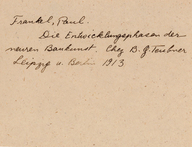 Frankel, Paul.
Die Entwicklungsphasen der
neuren Baukunst. Chez B. G. Teubner
Leipzig u. Berlin 1913